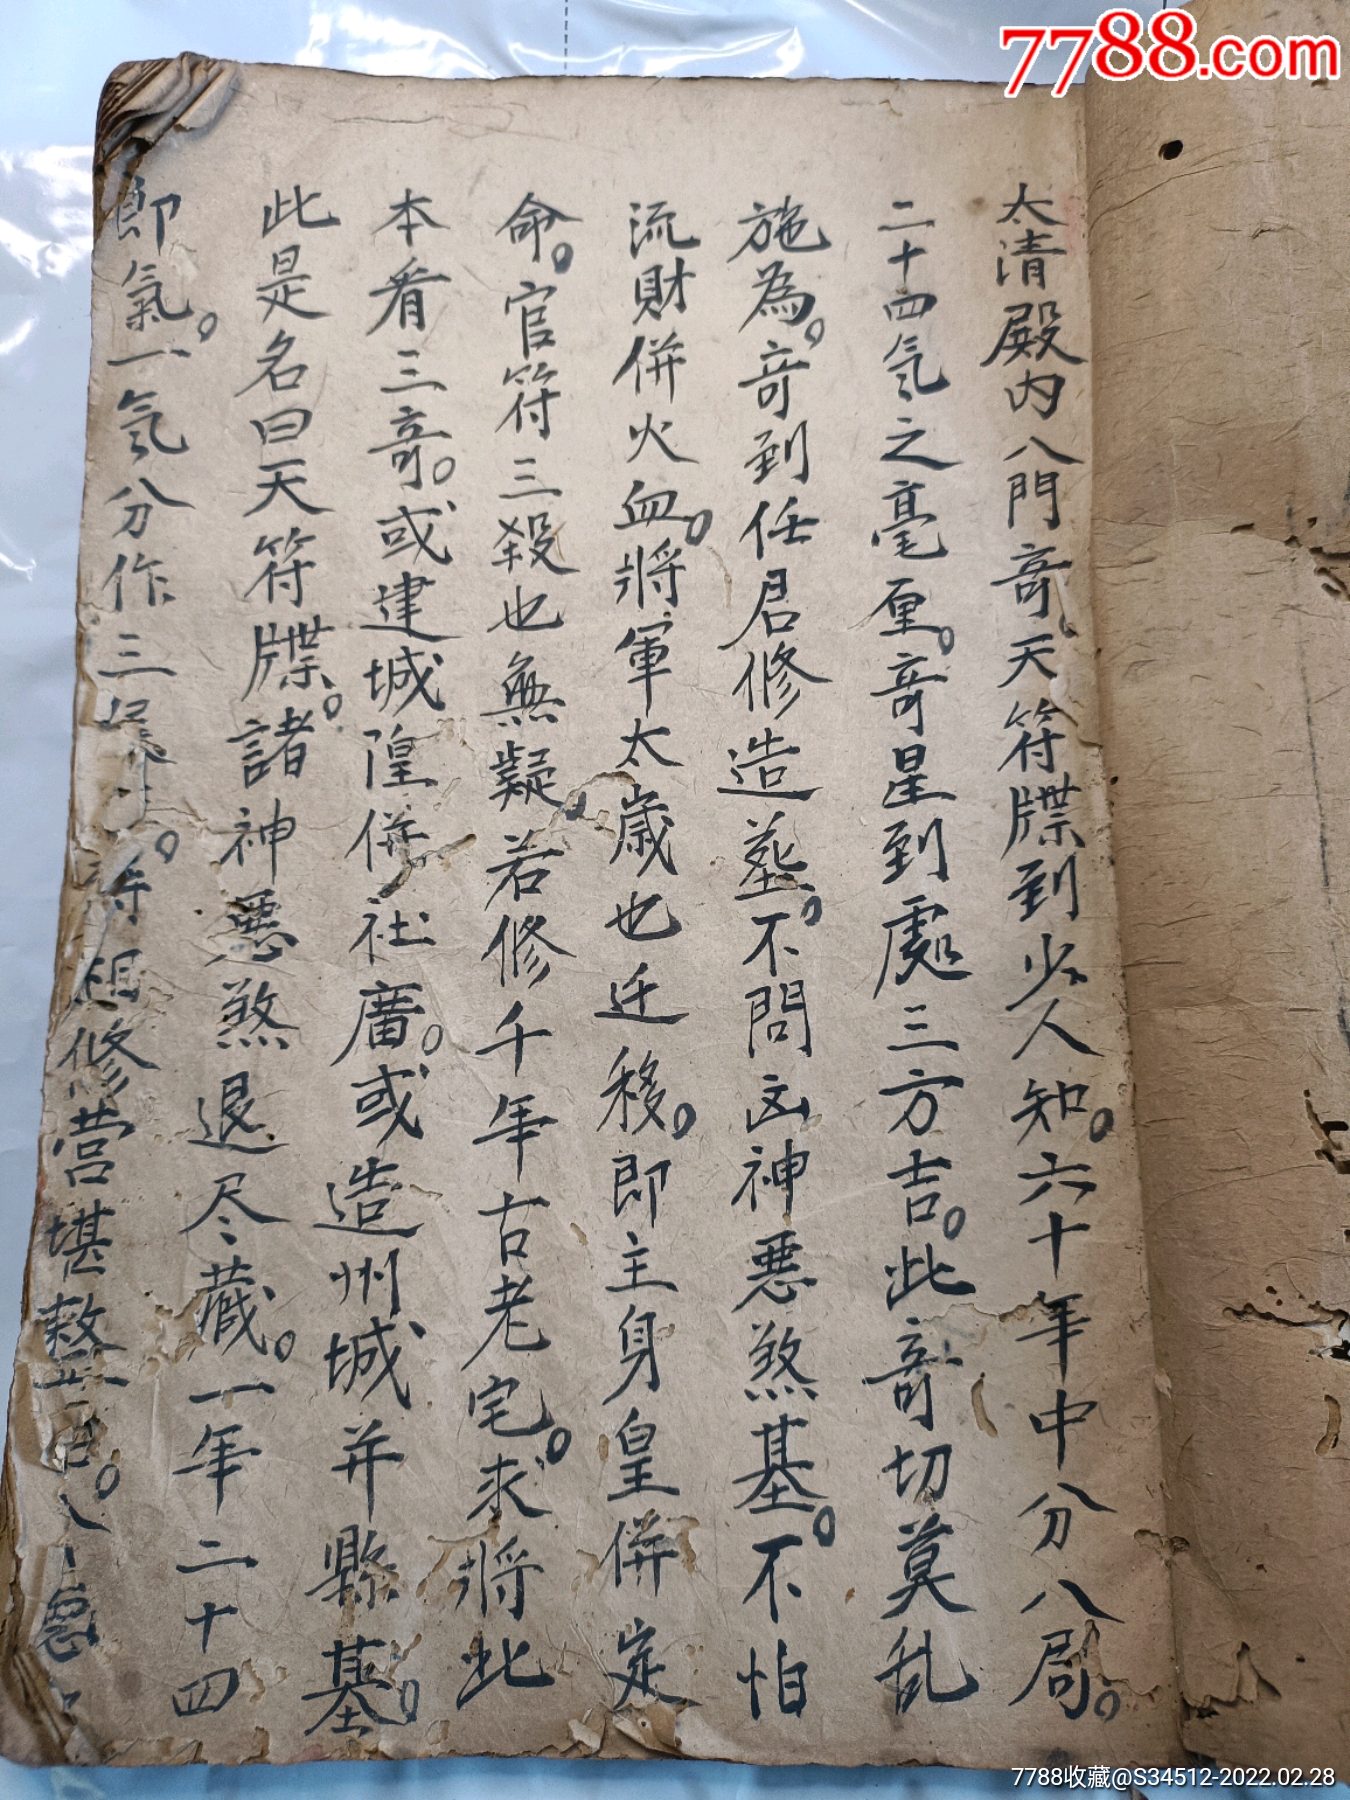 7788.com
太清殿内八門竒天符牒到少人知。六十年中分八局。
二十四気之毫厘。竒星到處三方吉。此竒切莫乱
施為。竒到任君修造塟。不問凶神惡煞基。不怕
流財併火血。將軍太歲也迁移。即主身皇併定
命。官符三殺也無疑。若修千年古老宅。求將此
本看三竒。或建城隍併社廣。或造州城并縣基。
此是名曰天符牒。諸神惡煞退尽藏。一年二十四
即氣。一気分作三。將相修营堪
7788收藏@S34512-2022.02.28